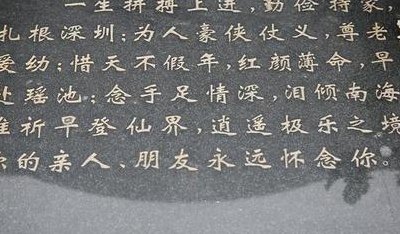 一生拼搏上进，勤俭持家，
扎根深圳；为人豪侠仗义，尊老
爱幼；惜天不假年，红颜薄命，早
赴瑶池；念手足情深，泪倾南海
唯祈早登仙界，逍遥极乐之境
你的亲人、朋友永远怀念你。